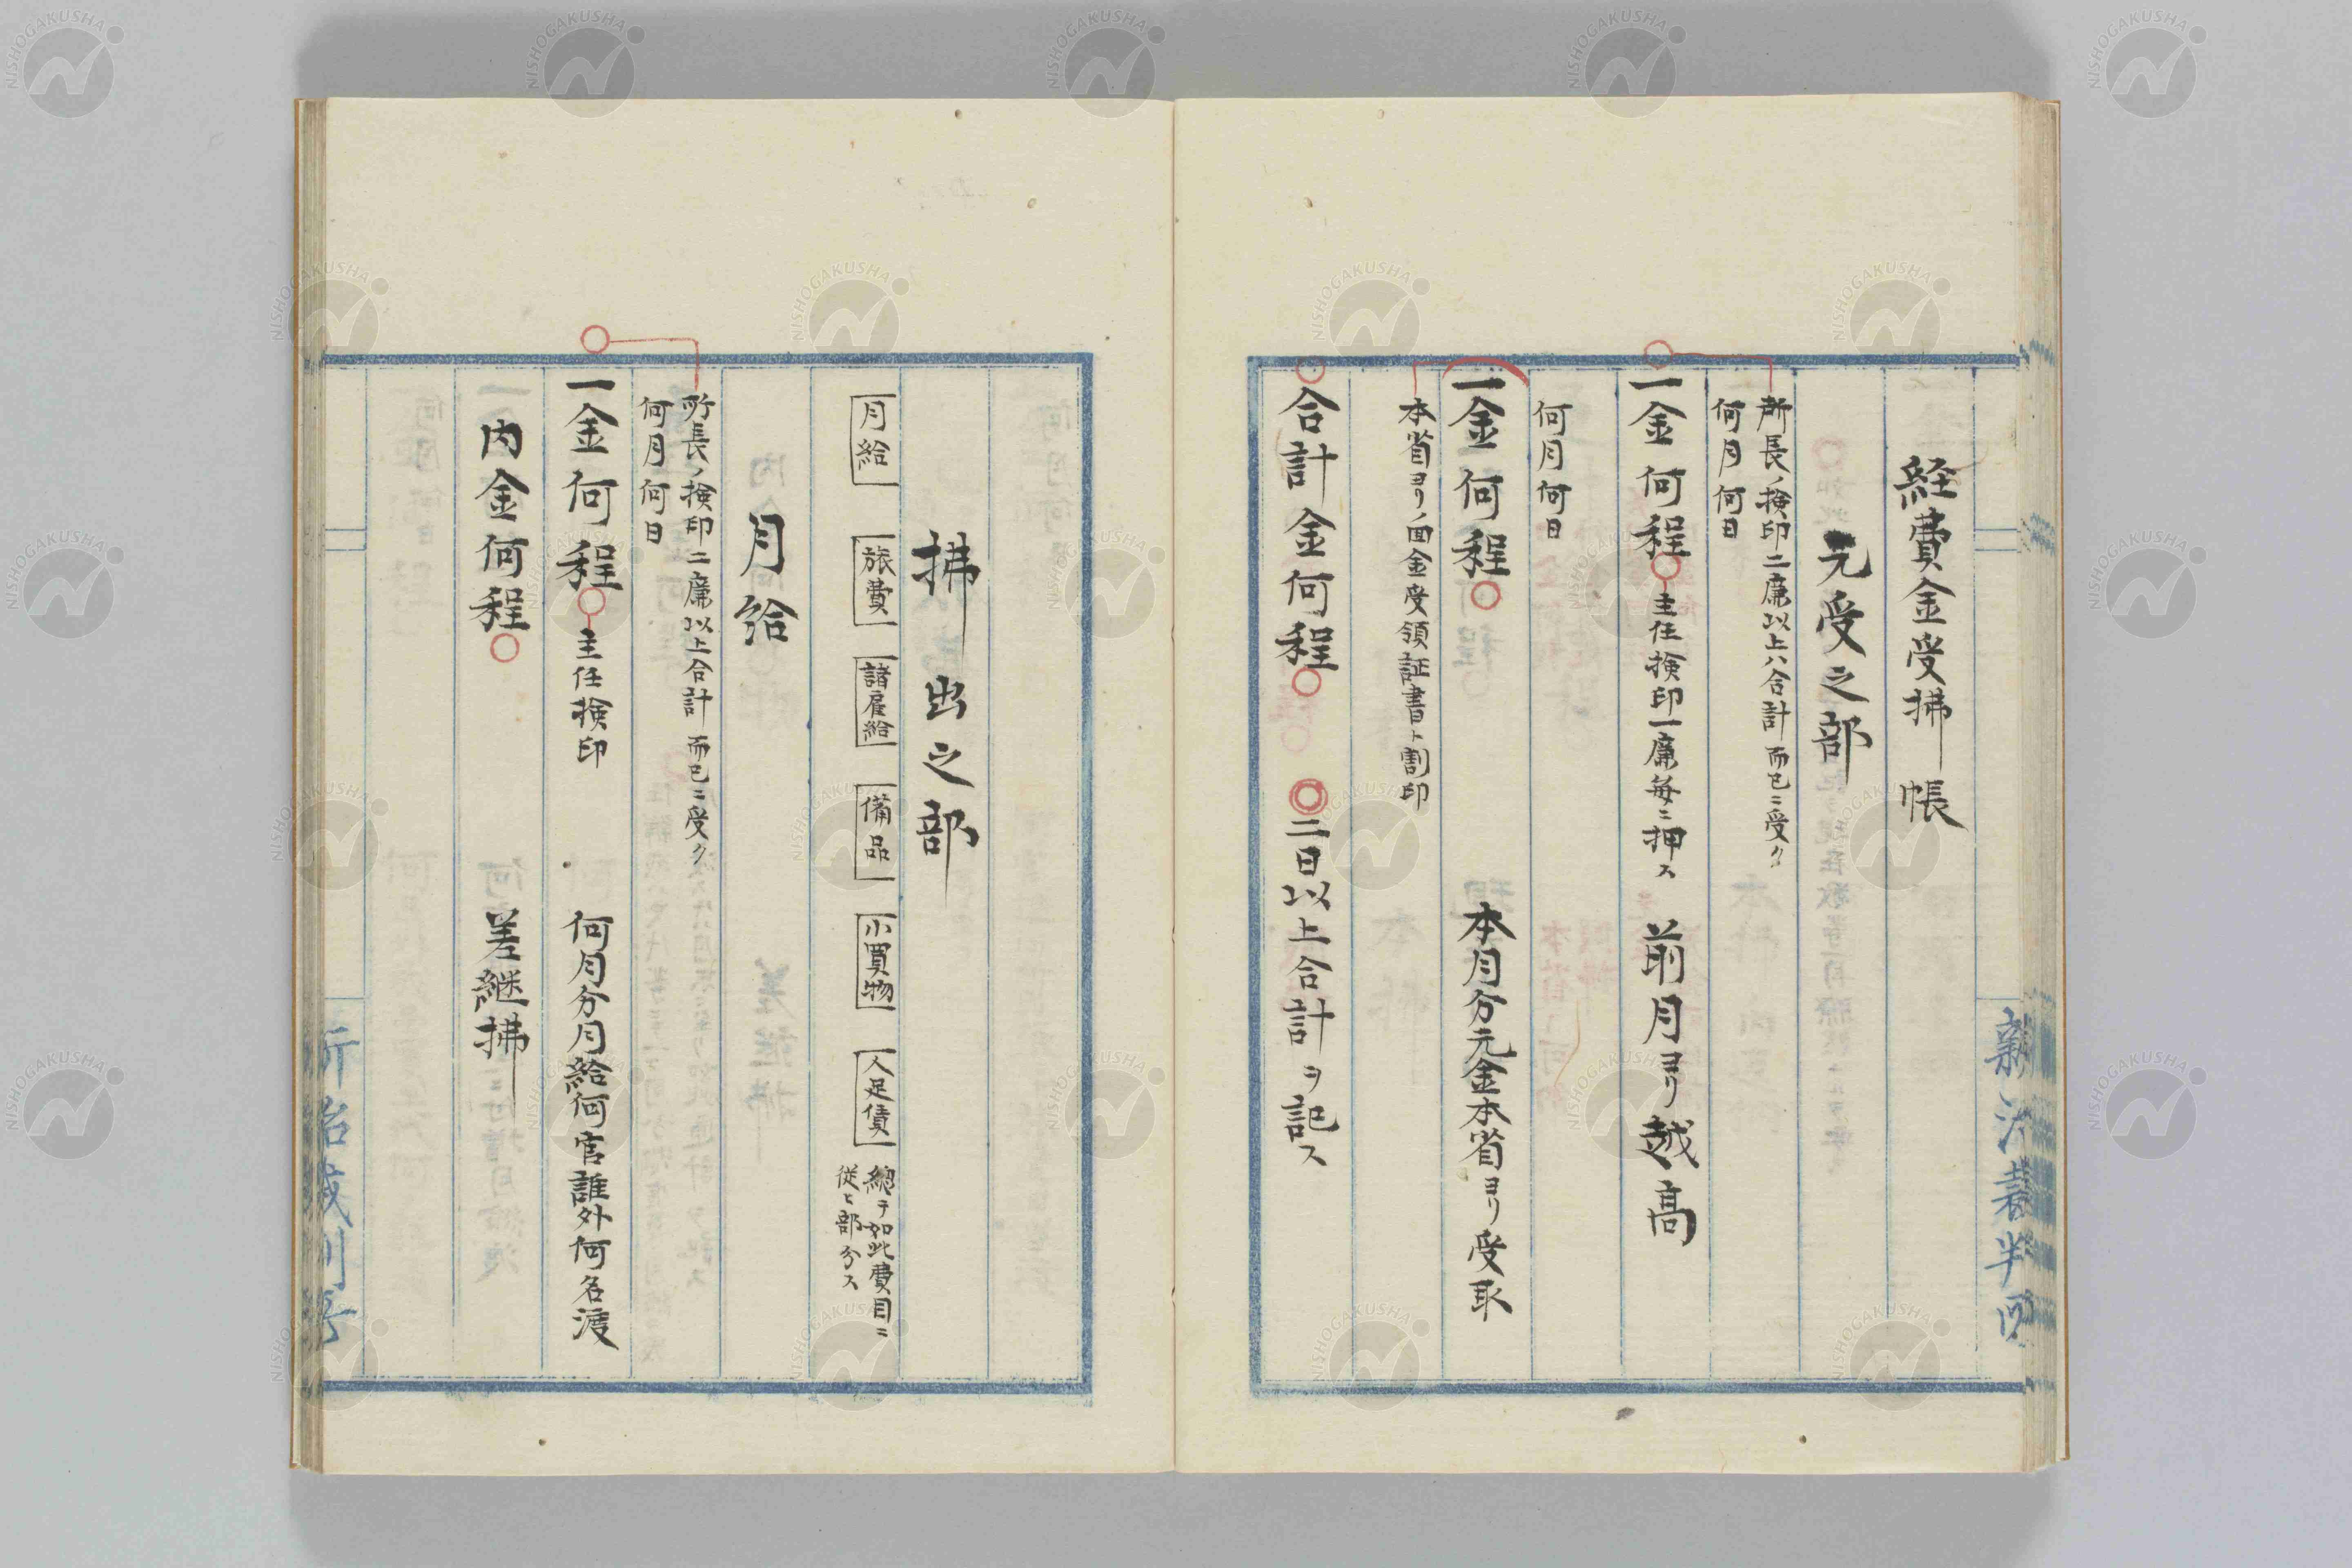 経費金受拂帳
元受之部
所長ノ検印二廉以上ハ合計而已ニ受ク
何月何日
一金何程 主任検印一廉毎ニ押ス 前月ヨリ越高
何月何日
一金何程 本月分元金本省ヨリ受取
本省ヨリノ面金受領証書ト割印
合計金何程 二日以上合計ヲ記ス
拂出之部
月給 旅費 諸雇給 備品 小買物 人足債
総テ如此費目ニ
従ヒ部分ス
月給
所長ノ検印二廉以上合計而已ニ受ク
何月何日
一金何程 主任検印 何月分月給何官誰外何名渡
内金何程 差継拂
NISHOGAKUSHA